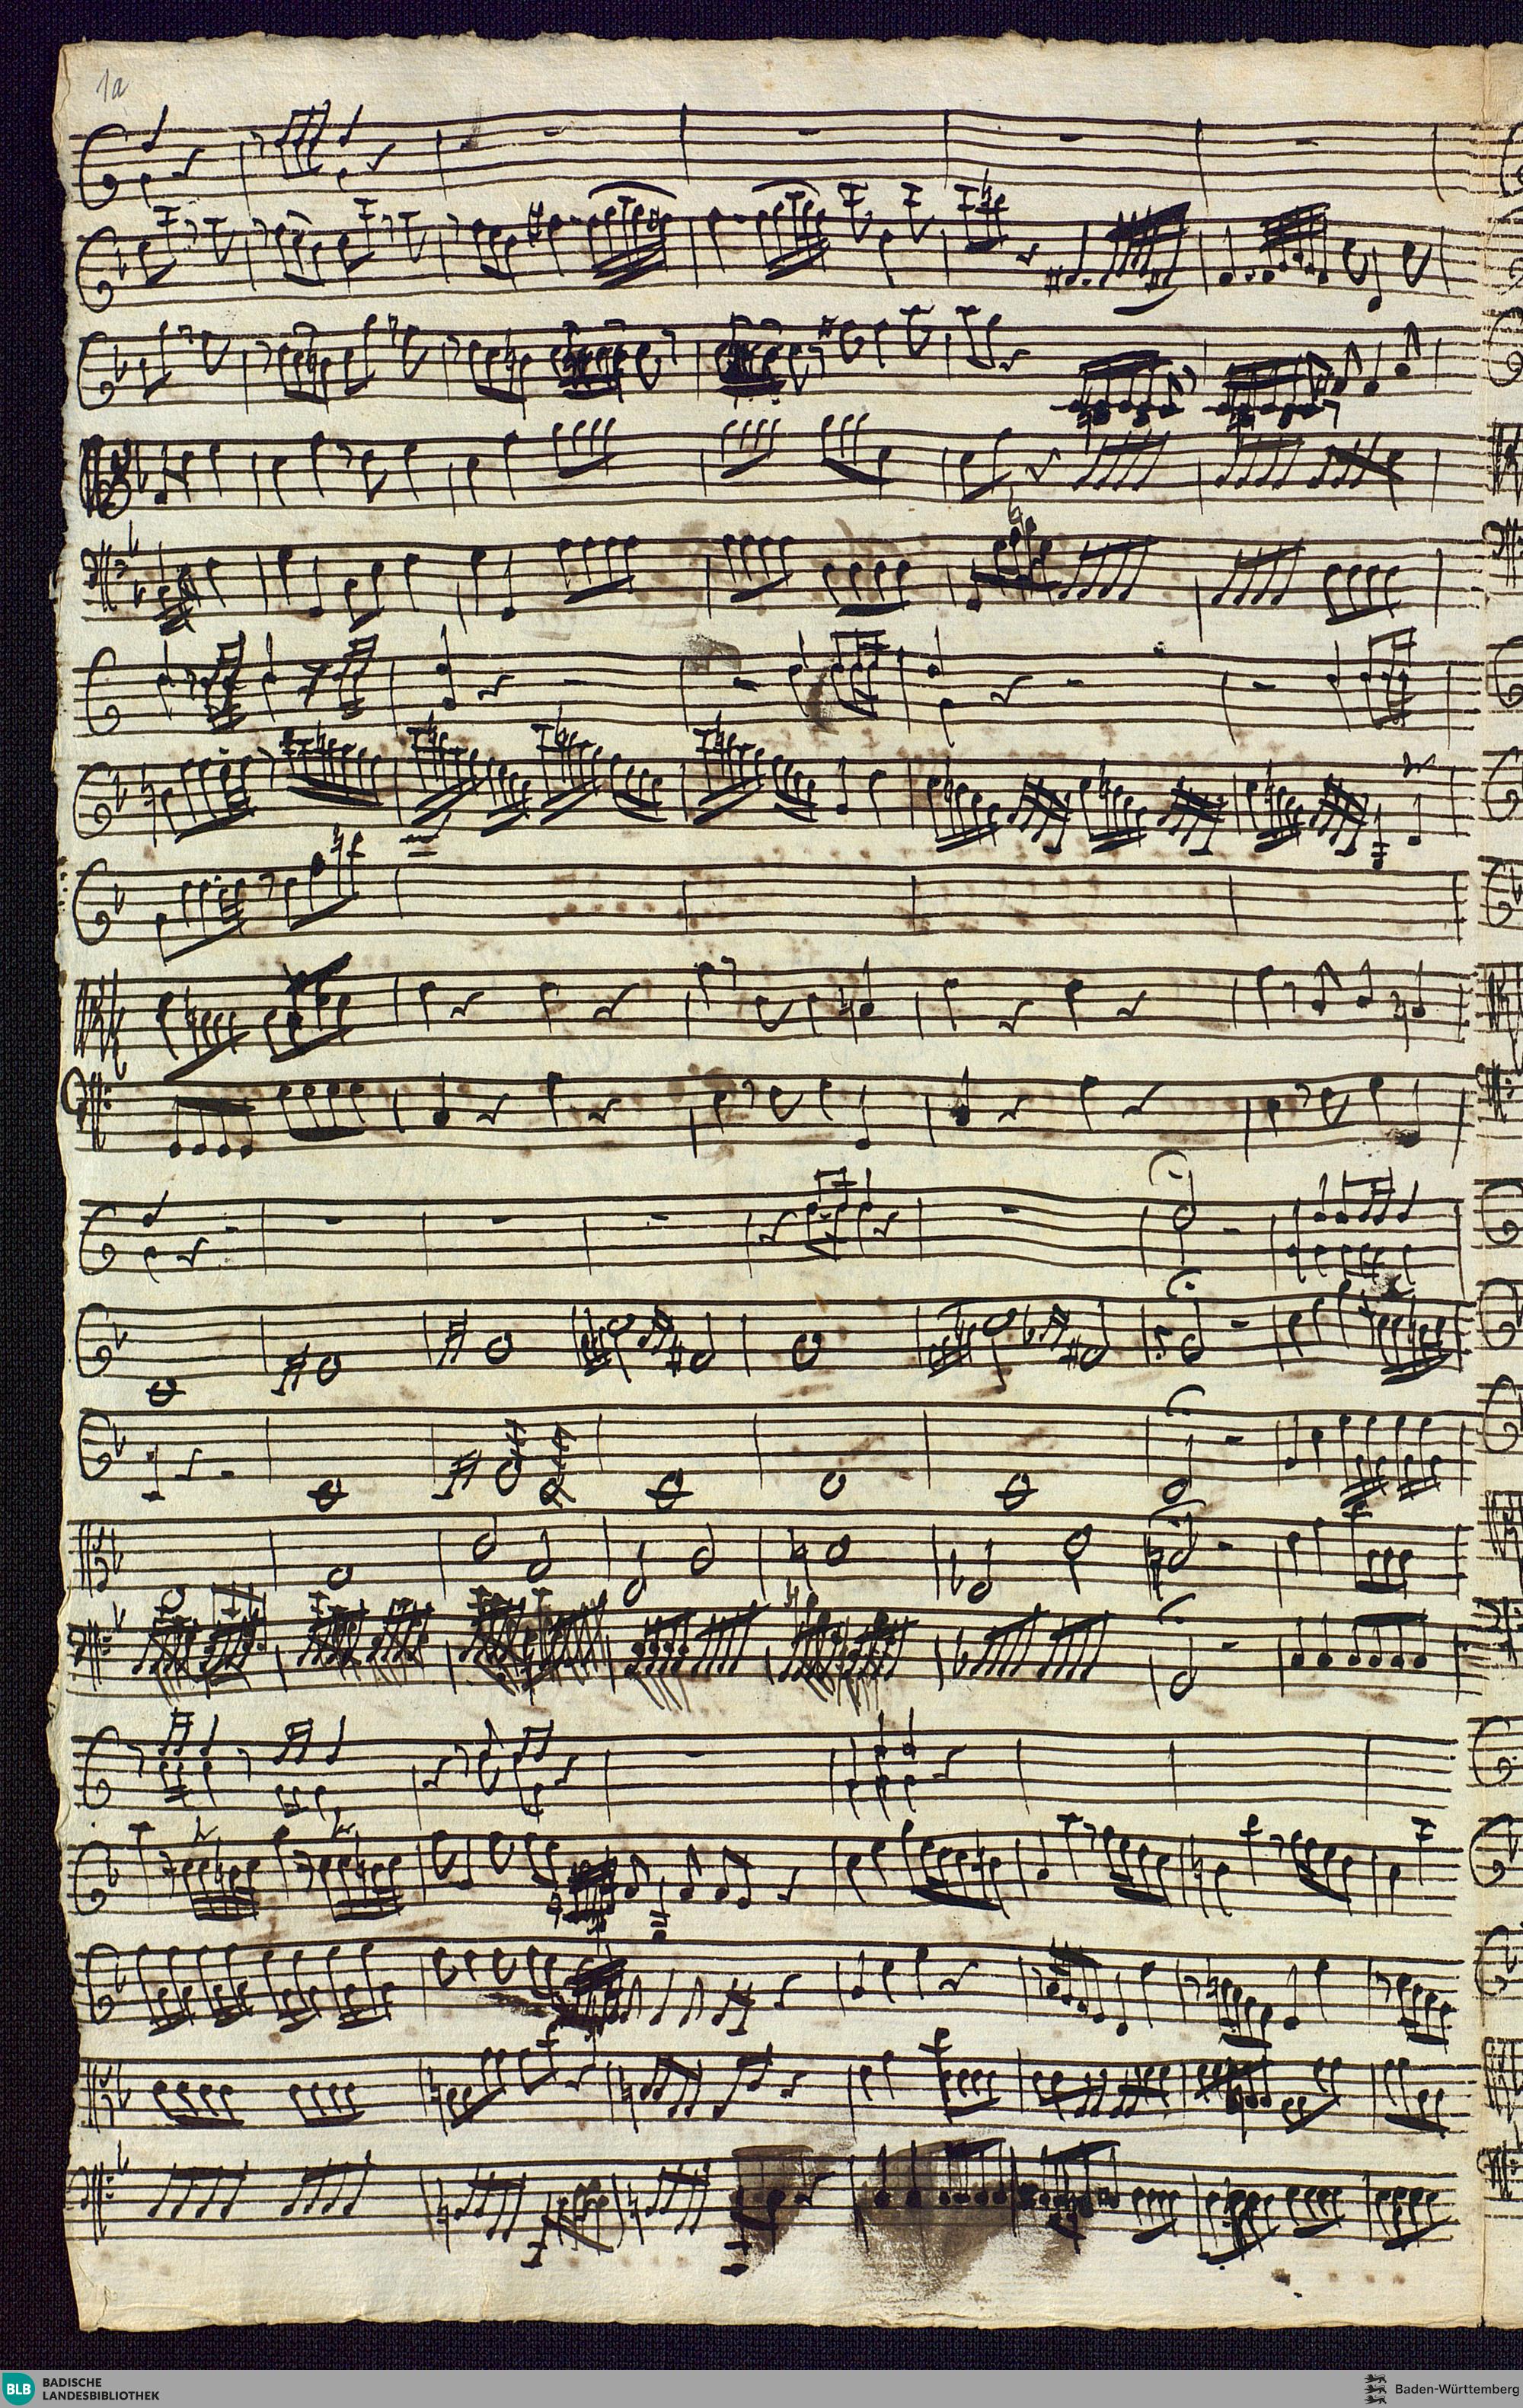 1a
BLB BADISCHE
LANDESBIBLIOTHEK
Baden-Württemberg